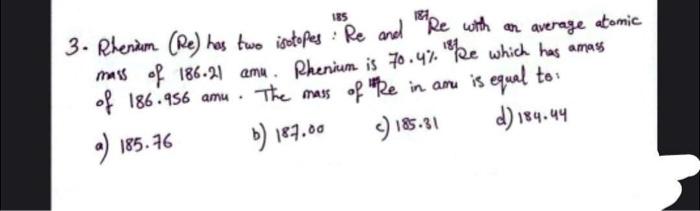 3. Rhenium (Re) has two isotopes : ¹⁸⁵Re and ¹⁸⁷Re with an average atomic
mass of 186.21 amu. Rhenium is 70.4% ¹⁸⁷Re which has amass
of 186.956 amu. The mass of Re in amu is equal to:
a) 185.76 b) 187.00 c) 185.31 d) 184.44